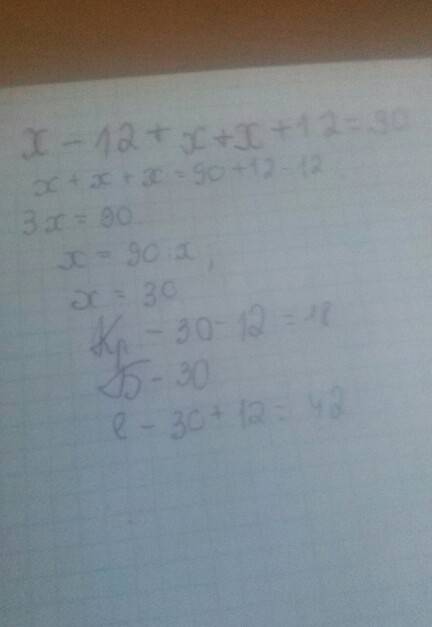 x - 12 + x + x + 12 = 90
x + x + x = 90 + 12 - 12
3x = 90
x = 90 : x;
x = 30
Кр - 30 - 12 = 18
Б - 30
с - 30 + 12 = 42